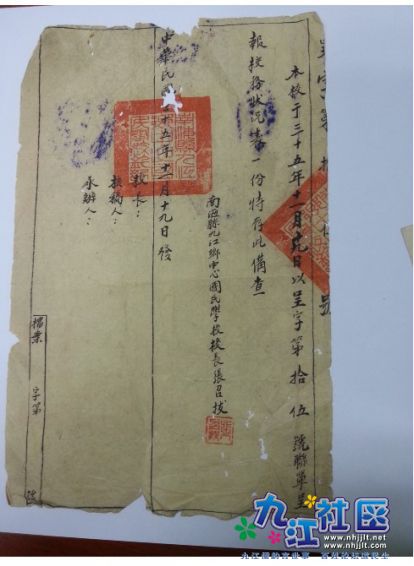 呈字第拾伍號
本校于三十五年十一月十九日以呈字第拾伍號聯單呈
報校務狀況壹份特存此備查
南海縣九江鄉中心國民學校校長張召拔
中華民國三十五年十一月十九日發
校長：
擬稿人：
承辦人：
檔案 字第 號
九江社区
www.nhjjlt.net
www.nhjjlt.com